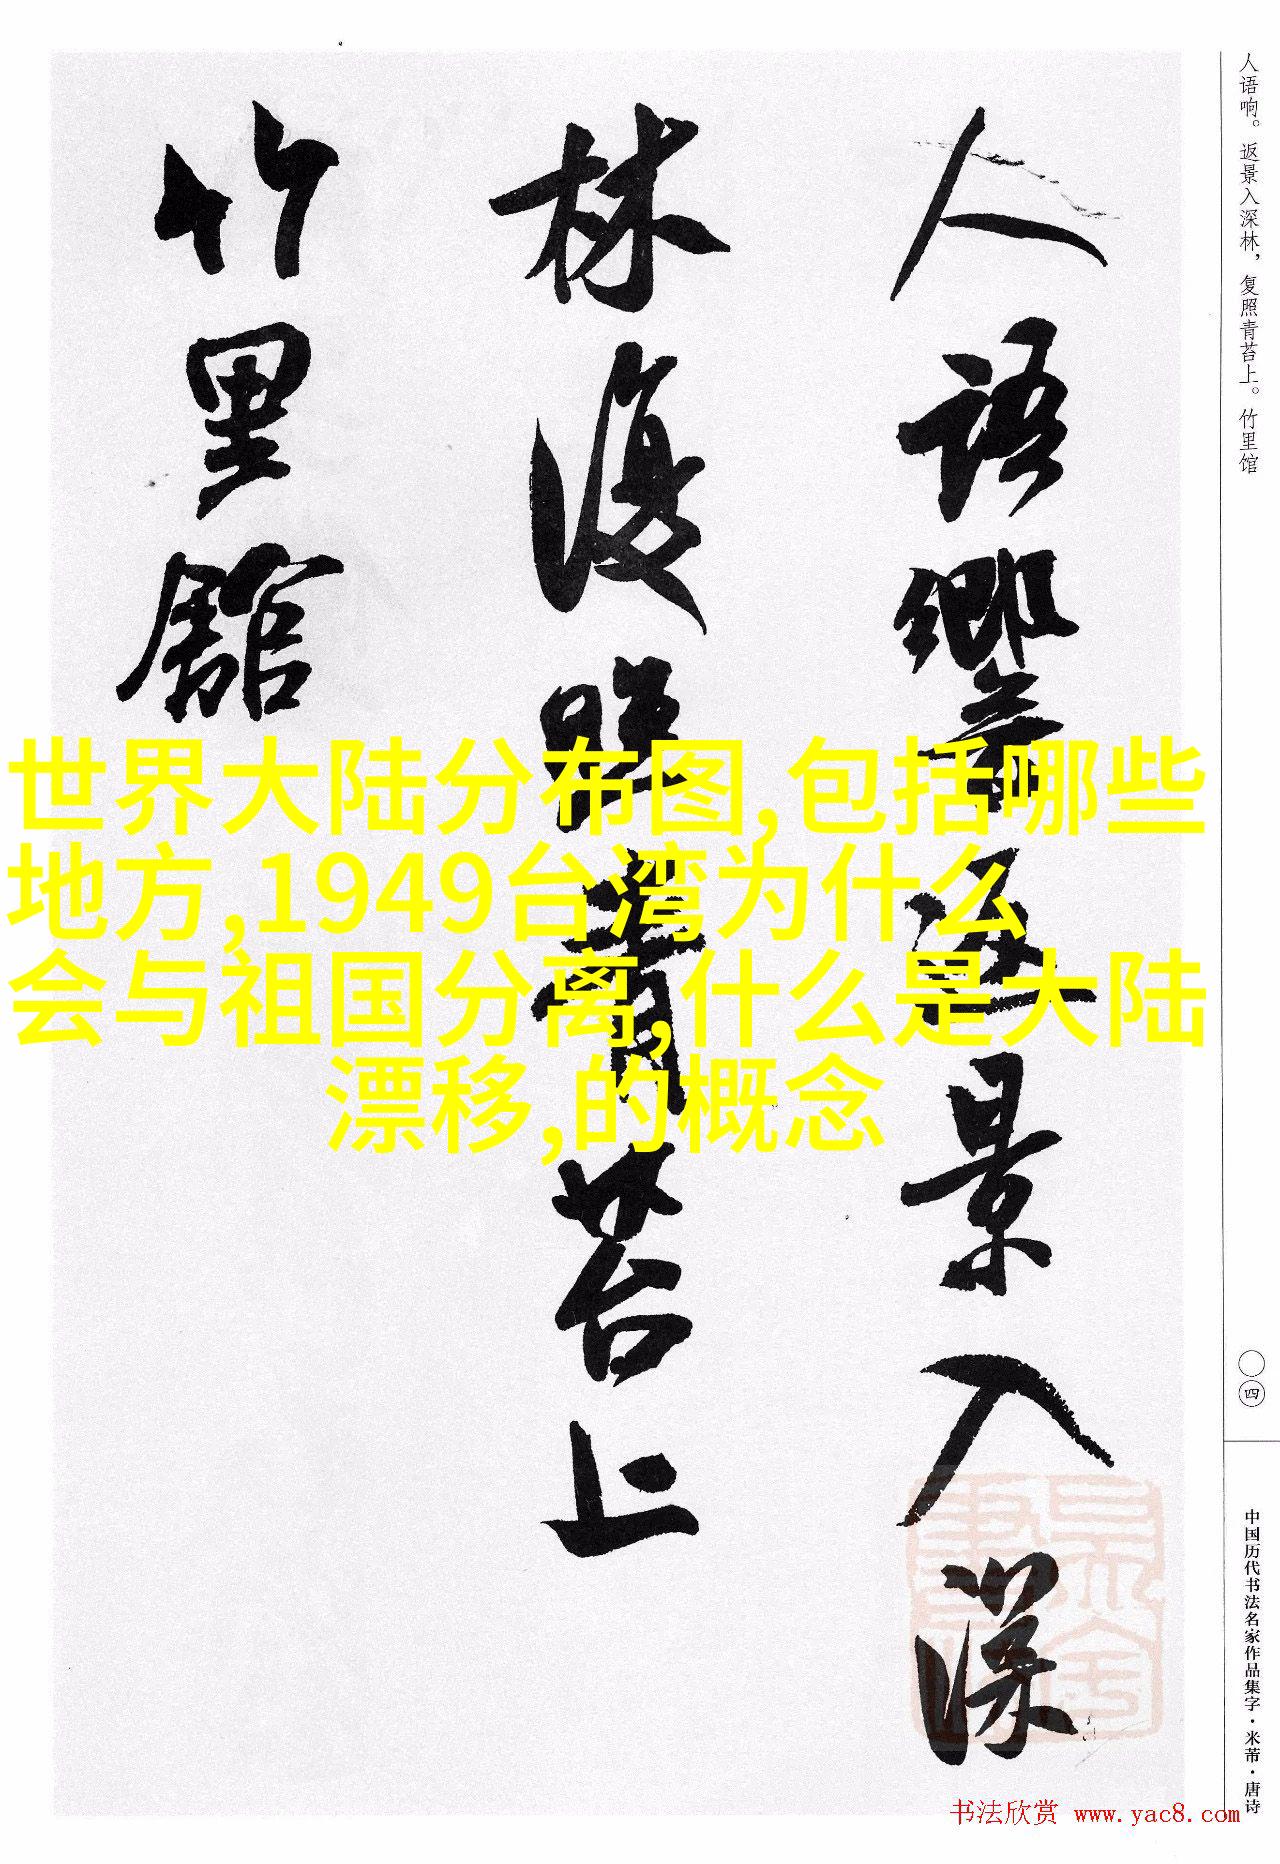 人语响。返景入深林，复照青苔上。竹里馆
人語響返景入深
林復照青苔上
竹里館
世界大陆分布图,包括哪些
地方,1949台湾为什么
会与祖国分离,什么是大陆
漂移,的概念
〇四
中国历代书法名家作品集字·米芾·唐诗
书法欣赏 www.yac8.com